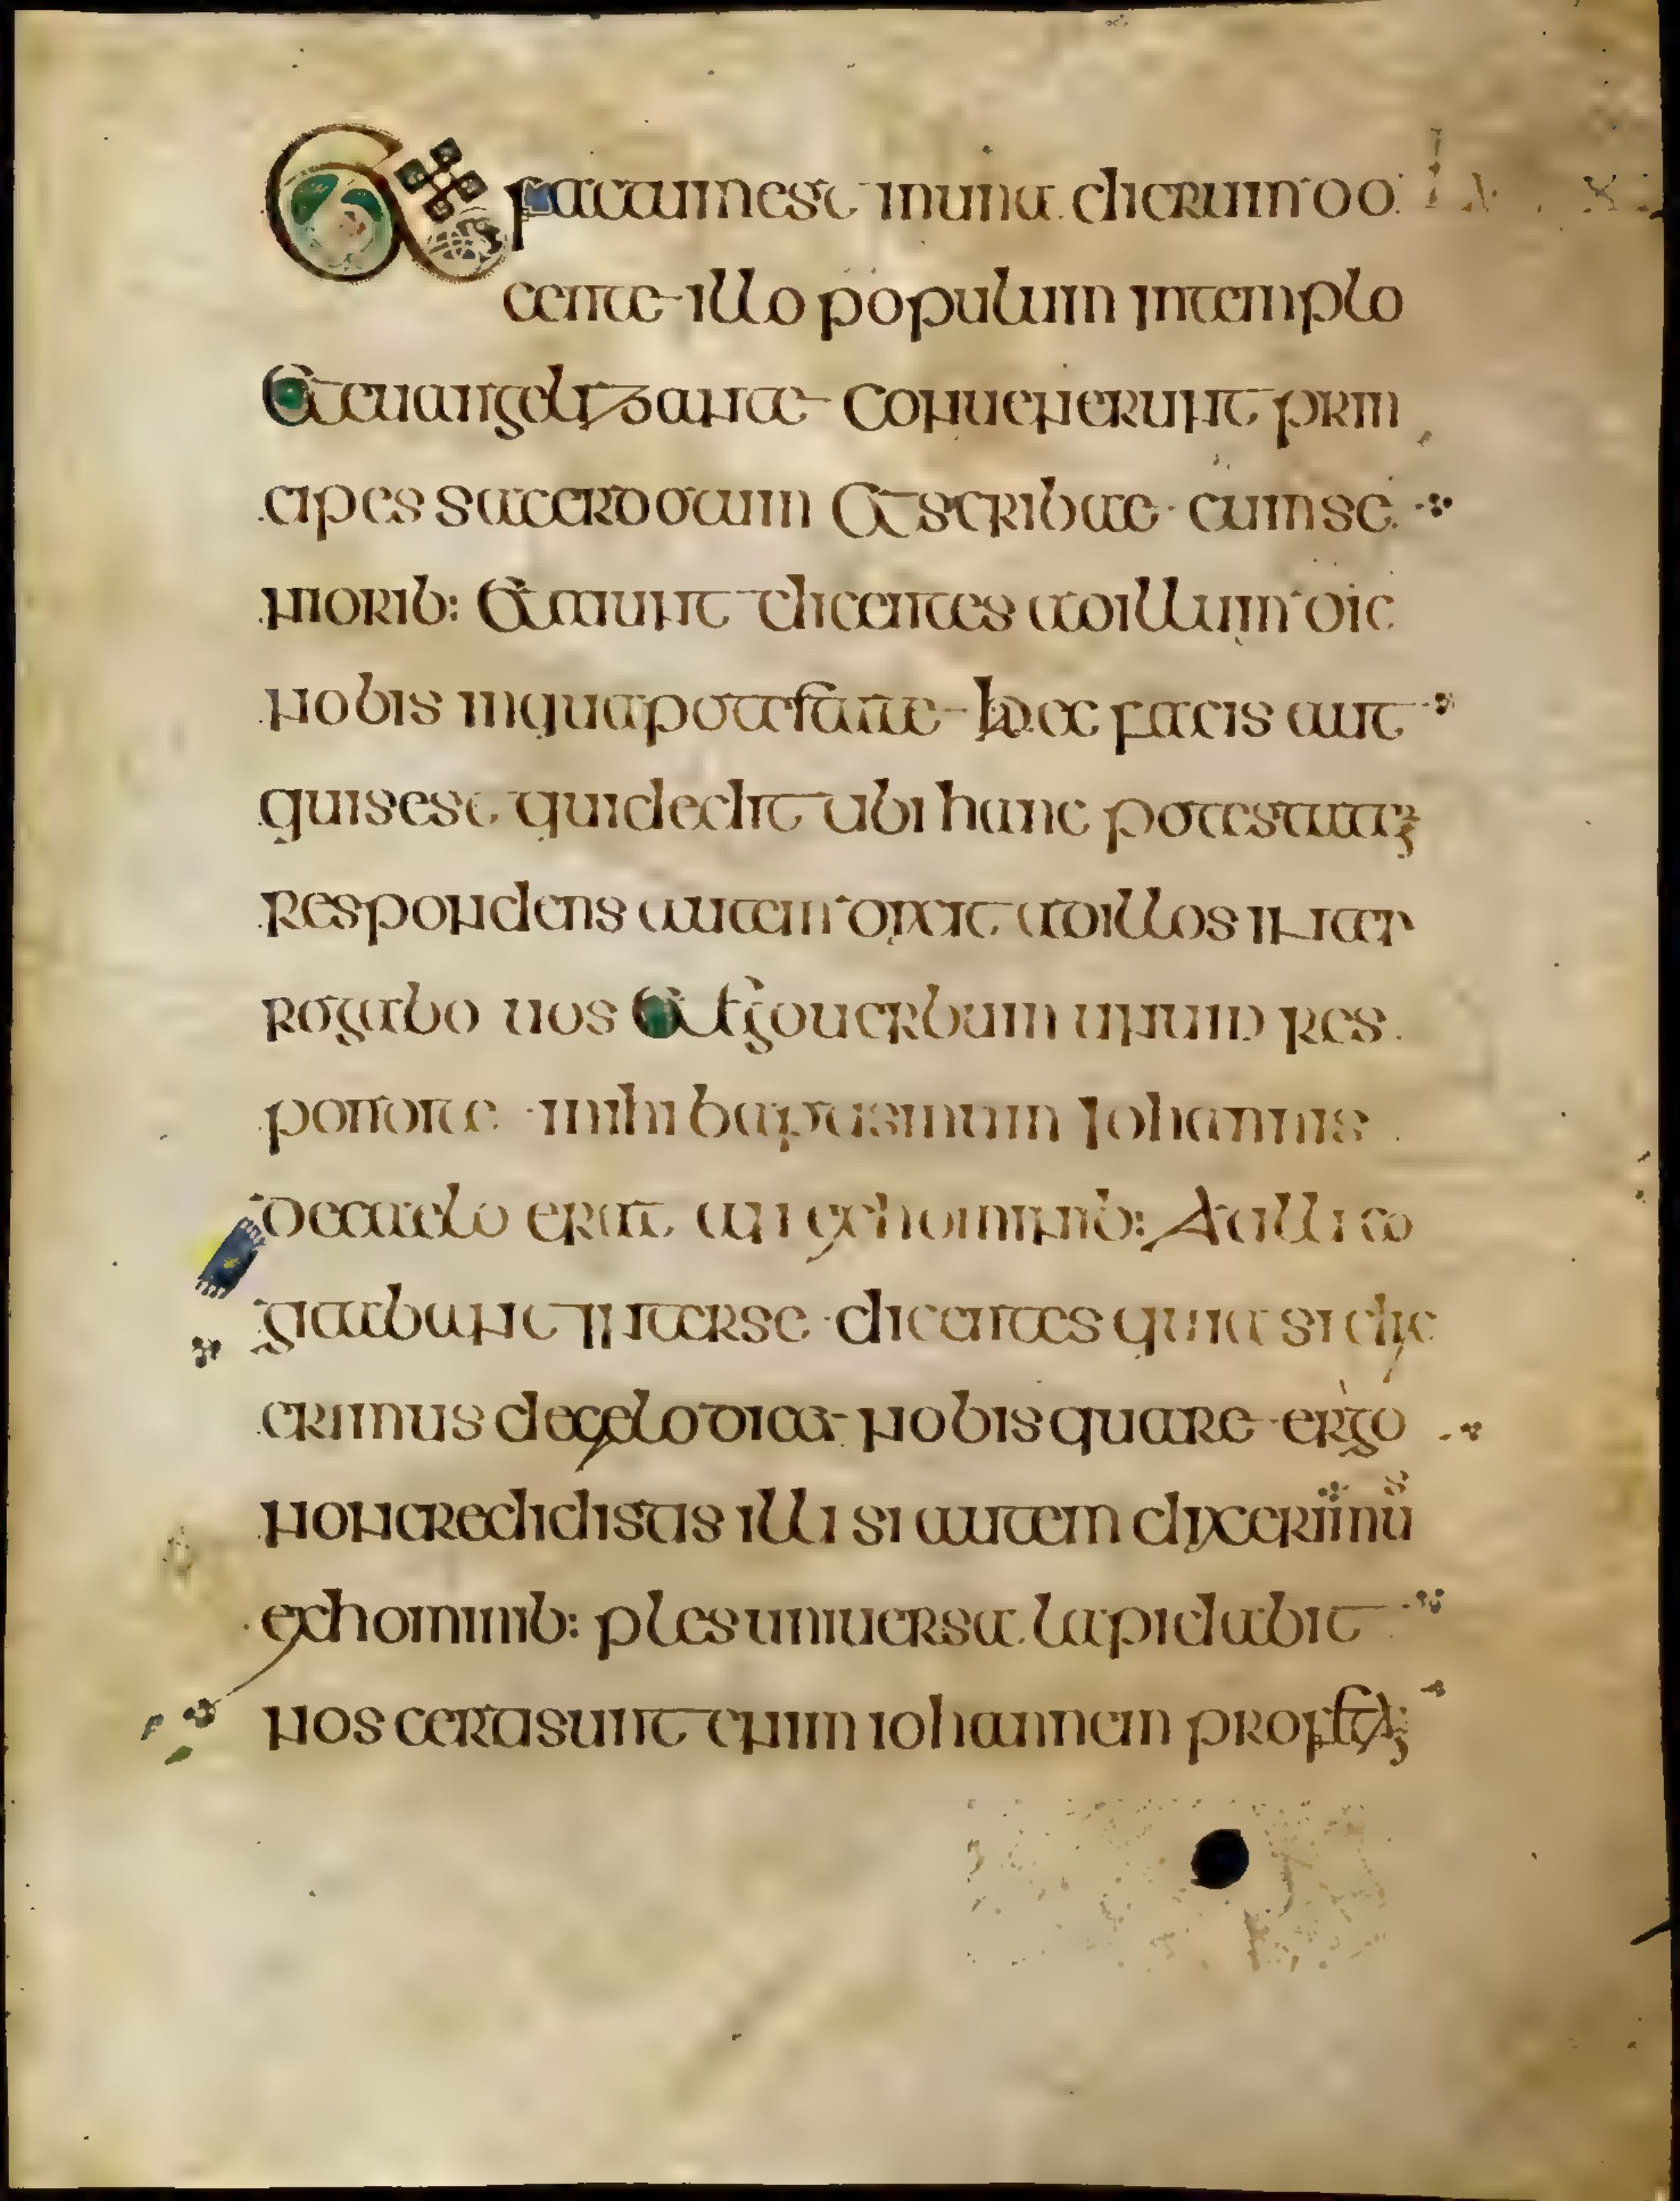 Et factum est in una dierum do
cente illo populum in templo
Et euangelizante conuenerunt prin
cipes sacerdotum Et scribae cum se
niorib: Et aiunt dicentes ad illum dic
nobis in qua potestate haec facis aut
quis est qui dedit tibi hanc potestatem
Respondens autem dixit ad illos inter
rogabo uos Et ego uerbum unum res
pondite mihi baptismum Iohannis
de caelo erat an ex hominib: At illi co
gitabant inter se dicentes quia si dix
erimus de caelo dicet nobis quare ergo
non credidistis illi si autem dixerimus
ex hominib: plebs uniuersa lapidabit
nos certi sunt enim iohannen profetam